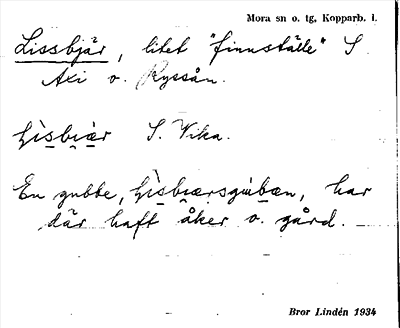 Mora sn o. tg, Kopparb. l.
Lissbjär, litet "finnställe" S
Axi o. Ryssån.
S. Vika.
En gubbe, har
där haft åker o. gård.
Bror Lindén 1934